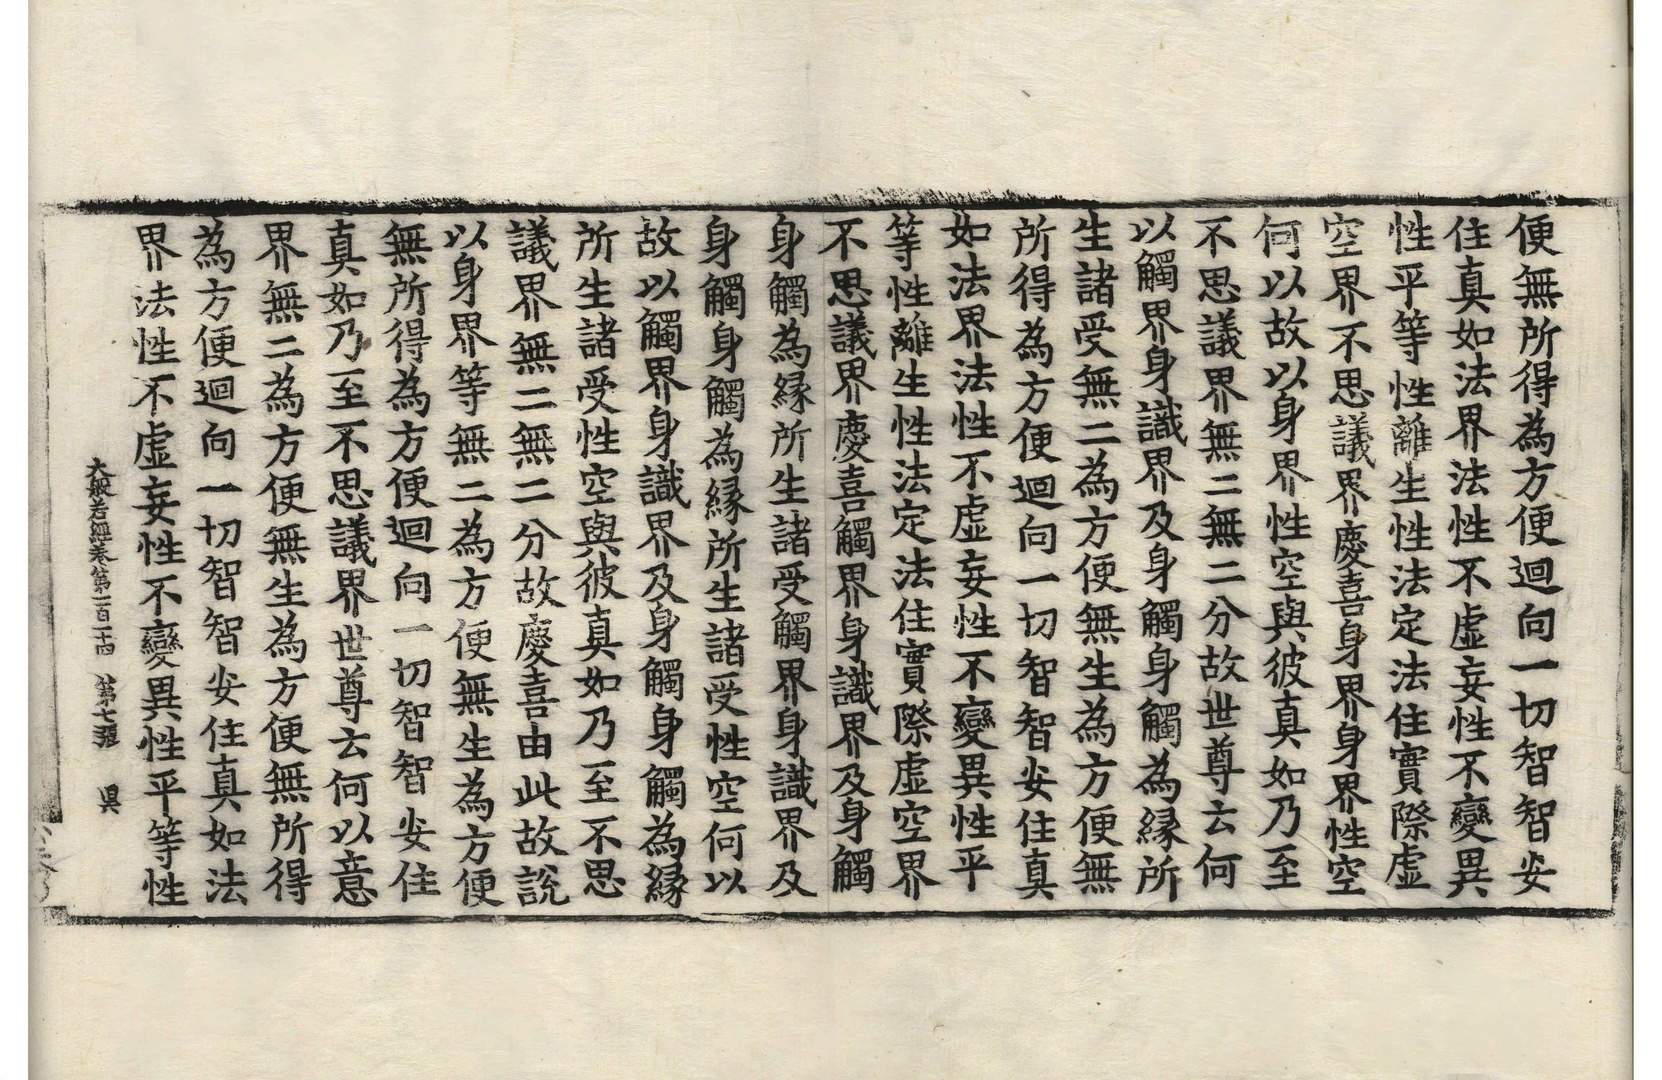 便無所得為方便迴向一切智智安
住真如法界法性不虛妄性不變異
性平等性離生性法定法住實際虛
空界不思議界慶喜身界身界性空
何以故以身界性空與彼真如乃至
不思議界無二無二分故世尊云何
以觸界身識界及身觸身觸為緣所
生諸受無二為方便無生為方便無
所得為方便迴向一切智智安住真
如法界法性不虛妄性不變異性平
等性離生性法定法住實際虛空界
不思議界慶喜觸界身識界及身觸
身觸為緣所生諸受觸界身識界及
身觸身觸為緣所生諸受性空何以
故以觸界身識界及身觸身觸為緣
所生諸受性空與彼真如乃至不思
議界無二無二分故慶喜由此故說
以身界等無二為方便無生為方便
無所得為方便迴向一切智智安住
真如乃至不思議界世尊云何以意
界無二為方便無生為方便無所得
為方便迴向一切智智安住真如法
界法性不虛妄性不變異性平等性
大般若經卷第一百二十四 第七張 㫷